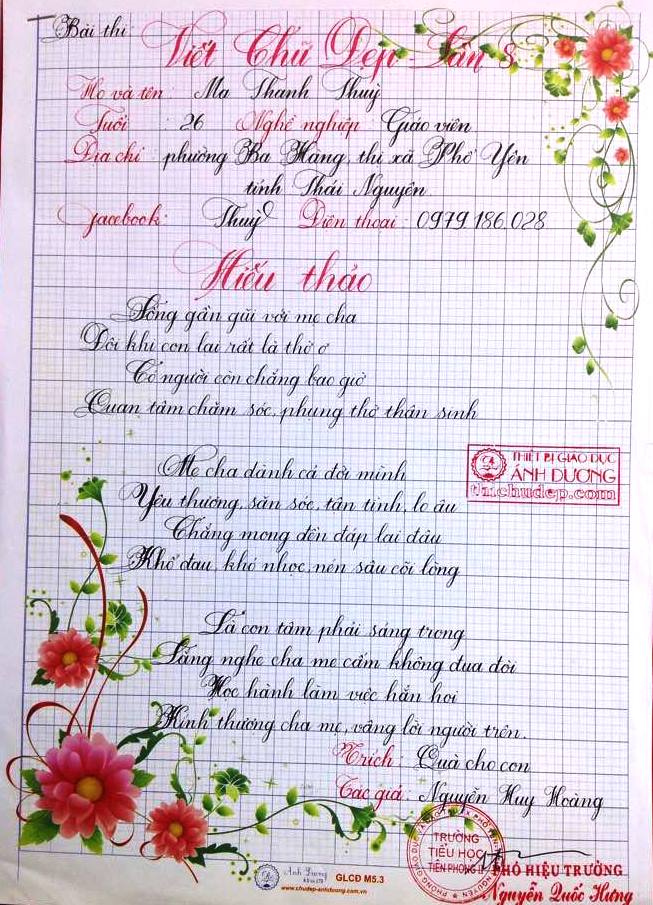 Bài thi:
Viết Chữ Đẹp - Lần 8
Họ và tên : Ma Thanh Thuỷ
Tuổi : 26 Nghề nghiệp : Giáo viên
Địa chỉ : phường Ba Hàng, thị xã Phổ Yên
tỉnh Thái Nguyên
facebook: Thuỷ Điện thoại : 0979.186.028
Hiếu thảo
Sống gần gũi với mẹ cha
Đôi khi con lại rất là thờ ơ
Có người còn chẳng bao giờ
Quan tâm chăm sóc, phụng thờ thân sinh
Mẹ cha dành cả đời mình
Yêu thương, săn sóc, tận tình, lo âu
THIẾT BỊ GIÁO DỤC
ÁNH DƯƠNG
thichudep.com
Chẳng mong đền đáp lại đâu
Khổ đau, khó nhọc, nén sâu cõi lòng
Là con tâm phải sáng trong
Lắng nghe cha mẹ cấm không đua đòi
Học hành làm việc hẳn hoi
Kính thương cha mẹ, vâng lời người trên.
Trích: Quà cho con
Tác giả : Nguyễn Huy Hoàng
TRƯỜNG
TIỂU HỌC
TIÊN PHONG II
PHÓ HIỆU TRƯỞNG
Nguyễn Quốc Hưng
Ánh Dương
GLCĐ M5.3
www.chudep-anhduong.com.vn